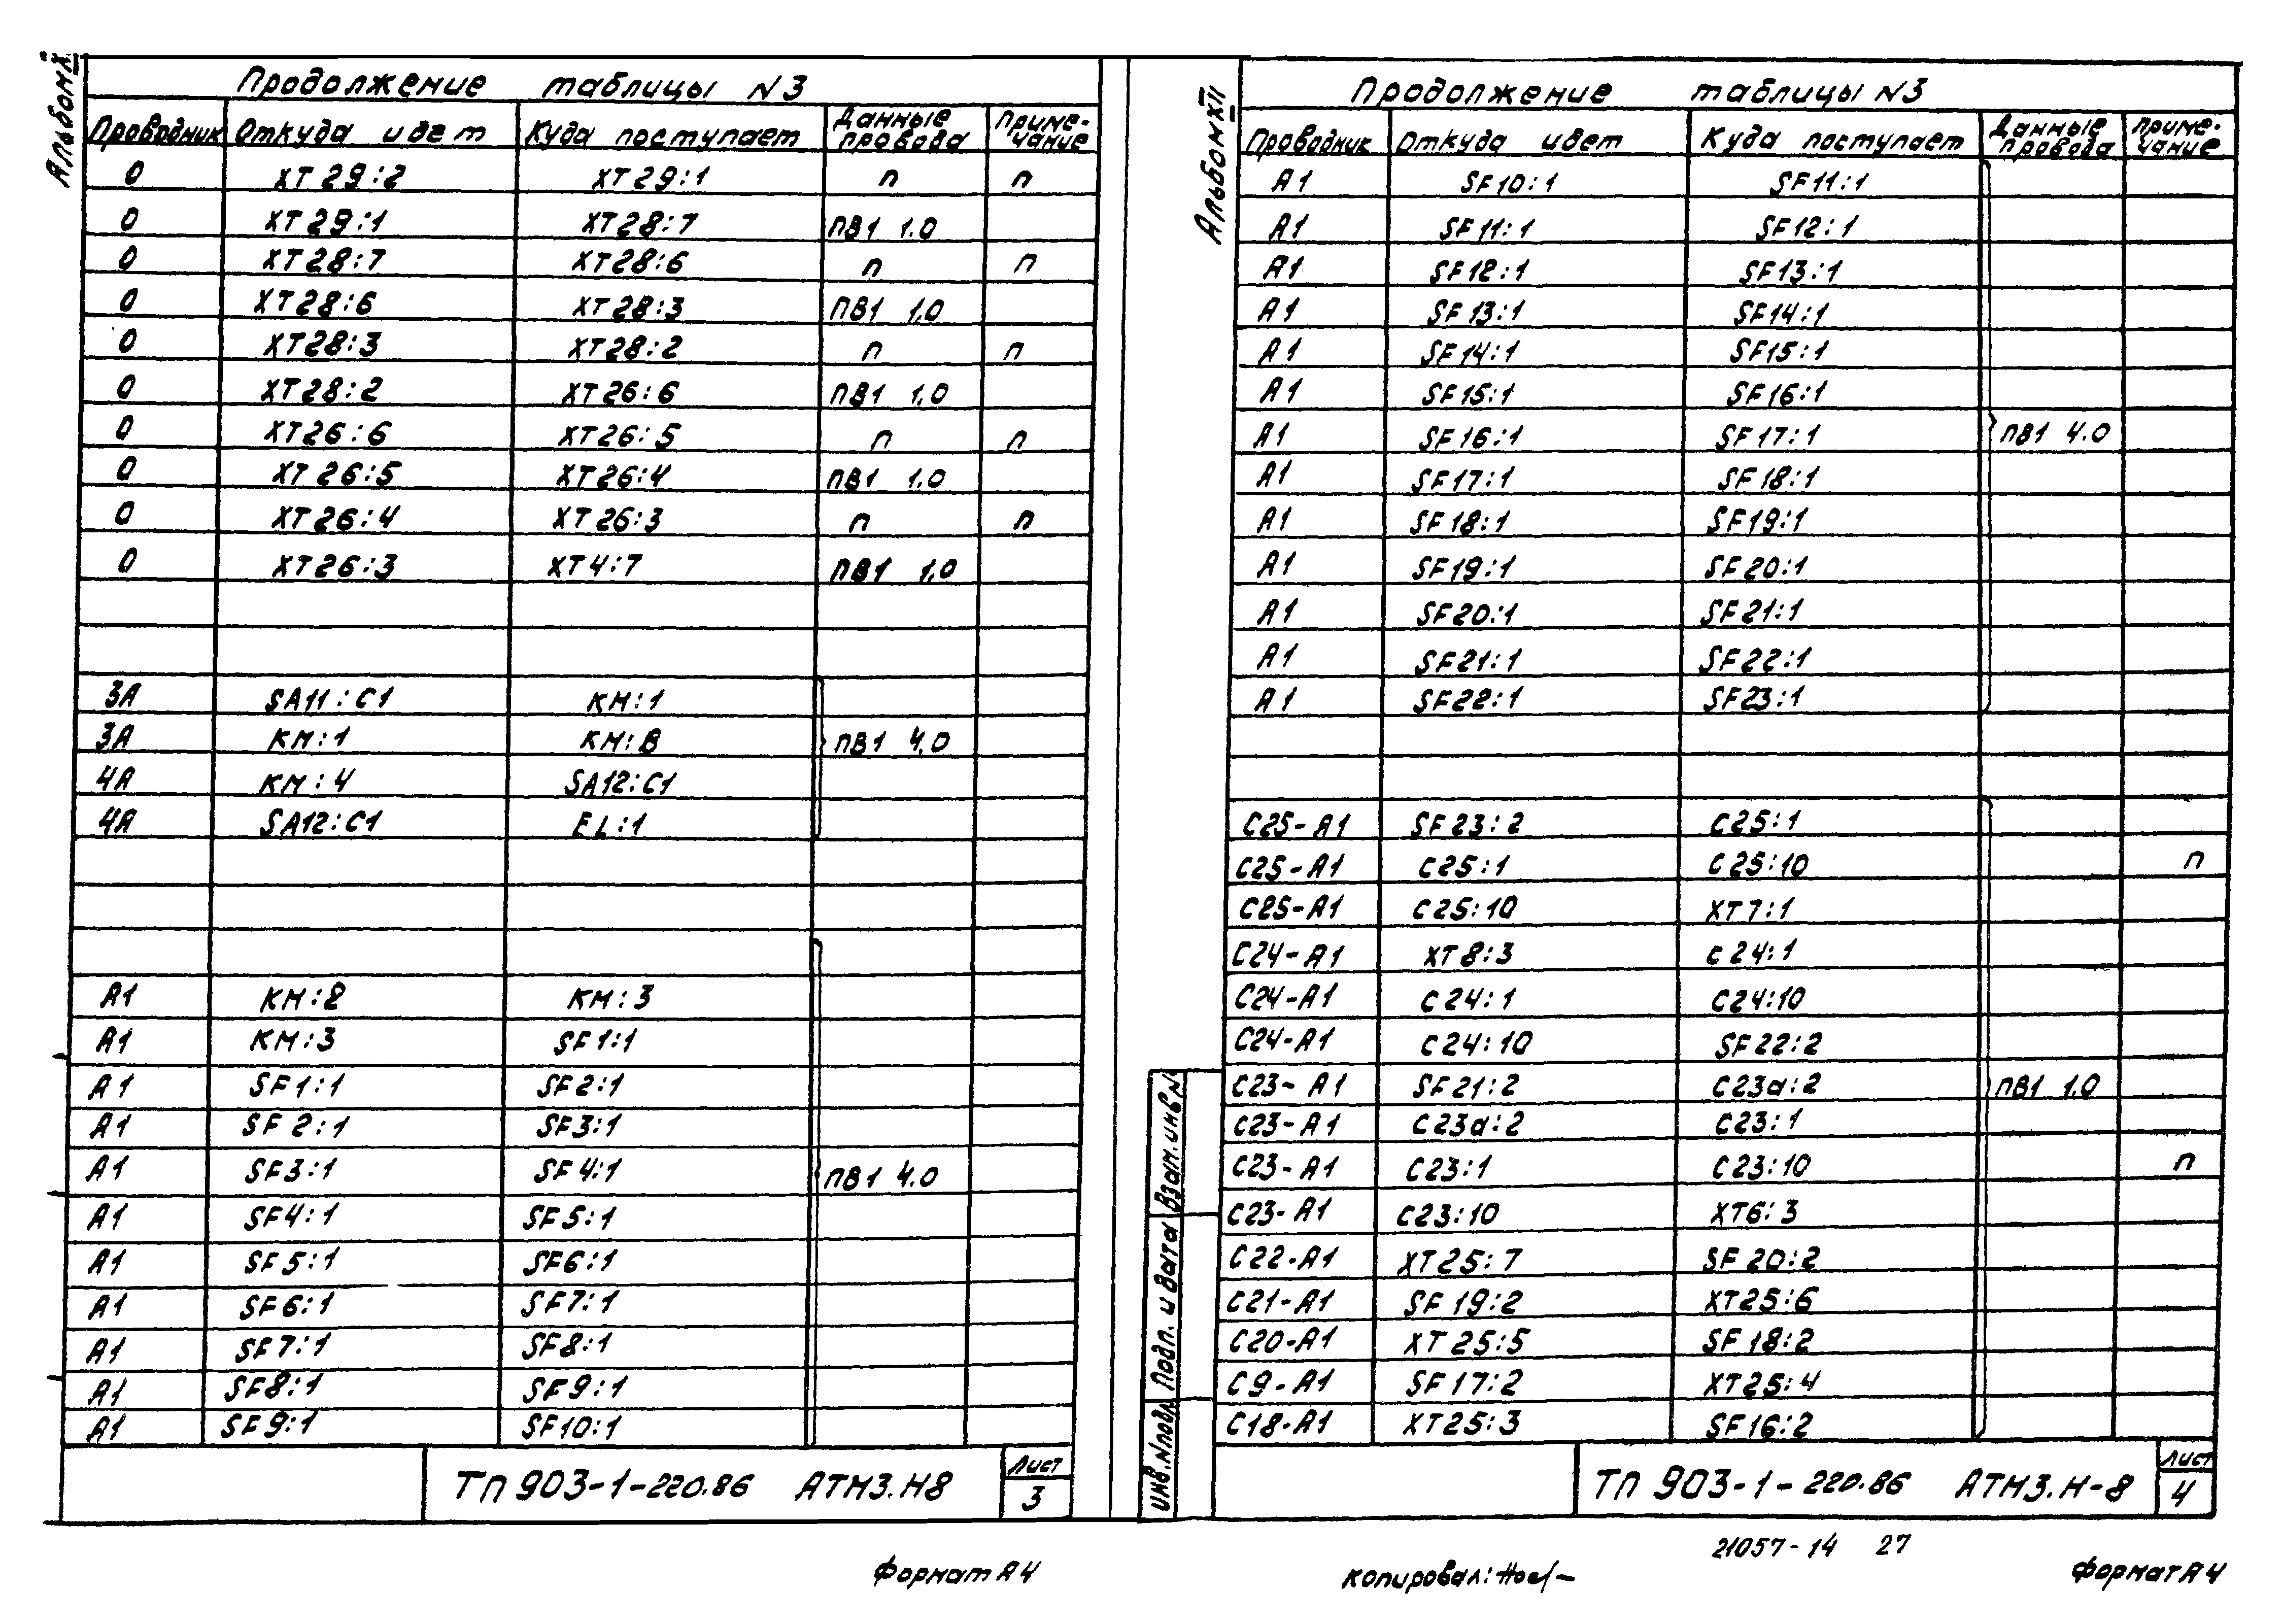 Альбом XII
Продолжение таблицы N3
Проводник Откуда идет Куда поступает Данные провода Примечание
0 XT29:2 XT29:1 п п
0 XT29:1 XT28:7 ПВ1 1.0
0 XT28:7 XT28:6 п п
0 XT28:6 XT28:3 ПВ1 1.0
0 XT28:3 XT28:2 п п
0 XT28:2 XT26:6 ПВ1 1.0
0 XT26:6 XT26:5 п п
0 XT26:5 XT26:4 ПВ1 1.0
0 XT26:4 XT26:3 п п
0 XT26:3 XT4:7 ПВ1 1.0
3А SA11:C1 KM:1
3А KM:1 KM:В ПВ1 4.0
4А KM:4 SA12:C1
4А SA12:C1 EL:1
А1 KM:2 KM:3
А1 KM:3 SF1:1
А1 SF1:1 SF2:1
А1 SF2:1 SF3:1
А1 SF3:1 SF4:1 ПВ1 4.0
А1 SF4:1 SF5:1
А1 SF5:1 SF6:1
А1 SF6:1 SF7:1
А1 SF7:1 SF8:1
А1 SF8:1 SF9:1
А1 SF9:1 SF10:1
ТП 903-1-220.86 АТМ3.Н8
Лист
3
Формат А4
Альбом XII
Продолжение таблицы N3
Проводник Откуда идет Куда поступает Данные провода Примечание
А1 SF10:1 SF11:1
А1 SF11:1 SF12:1
А1 SF12:1 SF13:1
А1 SF13:1 SF14:1
А1 SF14:1 SF15:1
А1 SF15:1 SF16:1
А1 SF16:1 SF17:1 ПВ1 4.0
А1 SF17:1 SF18:1
А1 SF18:1 SF19:1
А1 SF19:1 SF20:1
А1 SF20:1 SF21:1
А1 SF21:1 SF22:1
А1 SF22:1 SF23:1
С25-А1 SF23:2 С25:1
С25-А1 С25:1 С25:10 п
С25-А1 С25:10 XT7:1
С24-А1 XT8:3 С24:1
С24-А1 С24:1 С24:10
С24-А1 С24:10 SF22:2
С23-А1 SF21:2 С23а:2 ПВ1 1.0
С23-А1 С23а:2 С23:1
С23-А1 С23:1 С23:10 п
С23-А1 С23:10 XT6:3
С22-А1 XT25:7 SF20:2
С21-А1 SF19:2 XT25:6
С20-А1 XT25:5 SF18:2
С9-А1 SF17:2 XT25:4
С18-А1 XT25:3 SF16:2
Взам.инв.N
Подп. и дата
Инв.Nподл
ТП 903-1-220.86 АТМ3.Н-8
Лист
4
21057-14 27
Копировал:
Формат А4